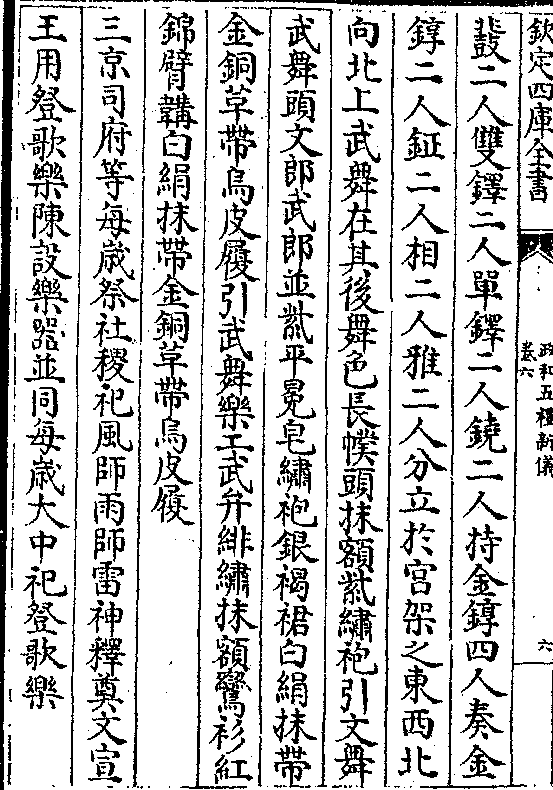 欽定四庫全書
政和五禮新儀
卷六
六
鼗二人雙鐸二人單鐸二人鐃二人持金錞四人奏金
錞二人鉦二人相二人雅二人分立於宫架之東西北
向北上武舞在其後舞色長幞頭抹額紫繡袍引文舞
武舞頭文郎武郎並紫平冕皂繡袍銀褐裙白絹抹帶
金銅革帶烏皮履引武舞樂工武弁緋繡抹額鸞衫紅
錦臂韝白絹抹帶金銅革帶烏皮履
三京司府等每歲祭社稷祀風師雨師雷神釋奠文宣
王用登歌樂陳設樂器並同每歲大中祀登歌樂